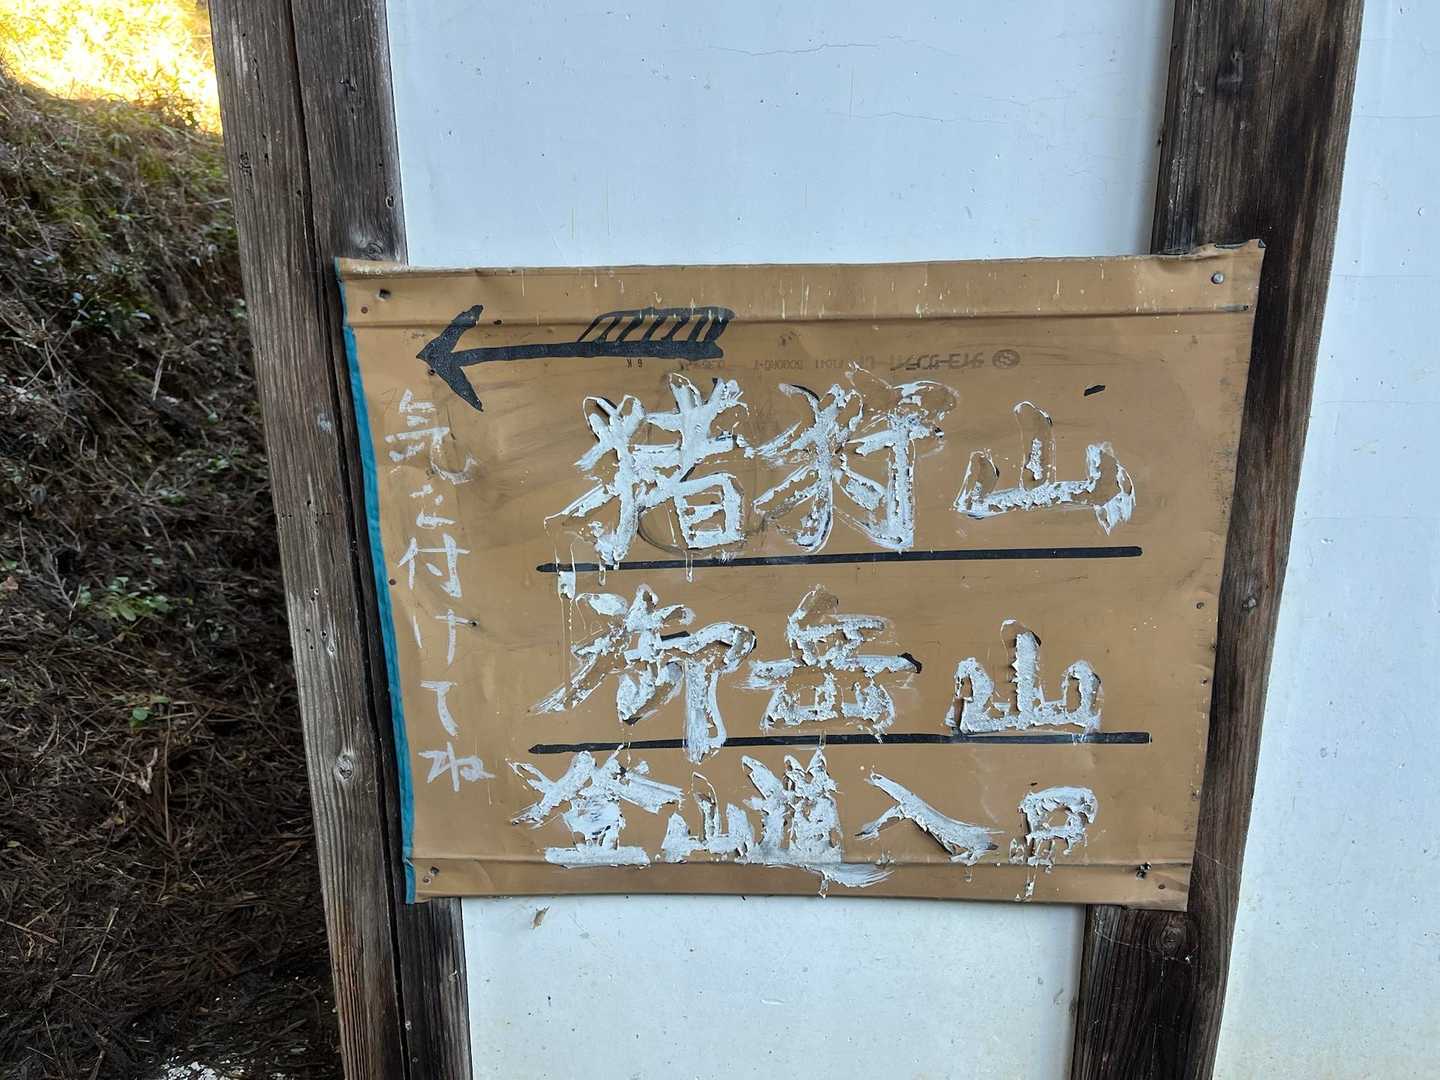 猪狩山
御岳山
登山道入口
気を付けてね